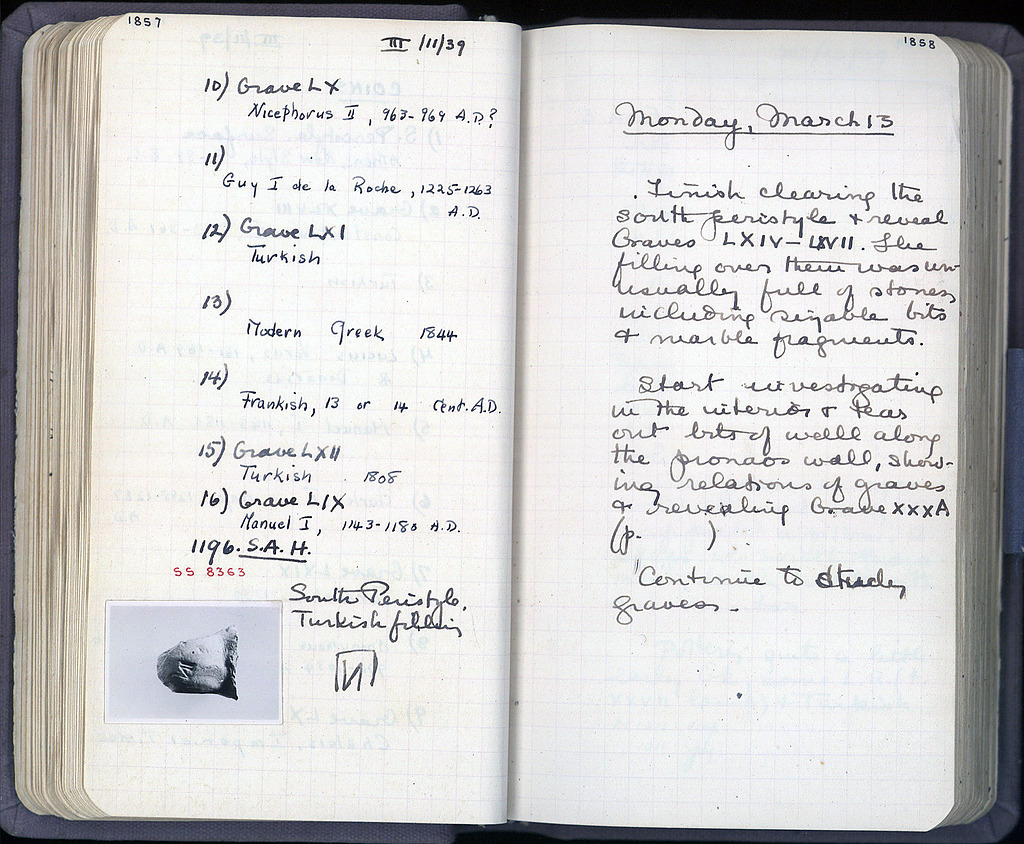 1857
III /11/39
10) Grave LX
Nicephorus II, 963-969 A.D.?
11)
Guy I de la Roche, 1225-1263
A.D.
12) Grave LXI
Turkish
13)
Modern Greek 1844
14)
Frankish, 13 or 14 Cent. A.D.
15) Grave LXII
Turkish 1808
16) Grave LIX
Manuel I, 1143-1180 A.D.
1196. S.A.H.
SS 8363
South Peristyle,
Turkish filling
1858
Monday, March 13
Finish clearing the
south peristyle & reveal
Graves LXIV-LXVII. The
filling over them was un-
usually full of stones,
including sizable bits
& marble fragments.
Start investigating
in the interior & tear
out bits of wall along
the pronaos wall, show-
ing relations of graves
& revealing Grave XXXA
(p. )
Continue to study
graves.